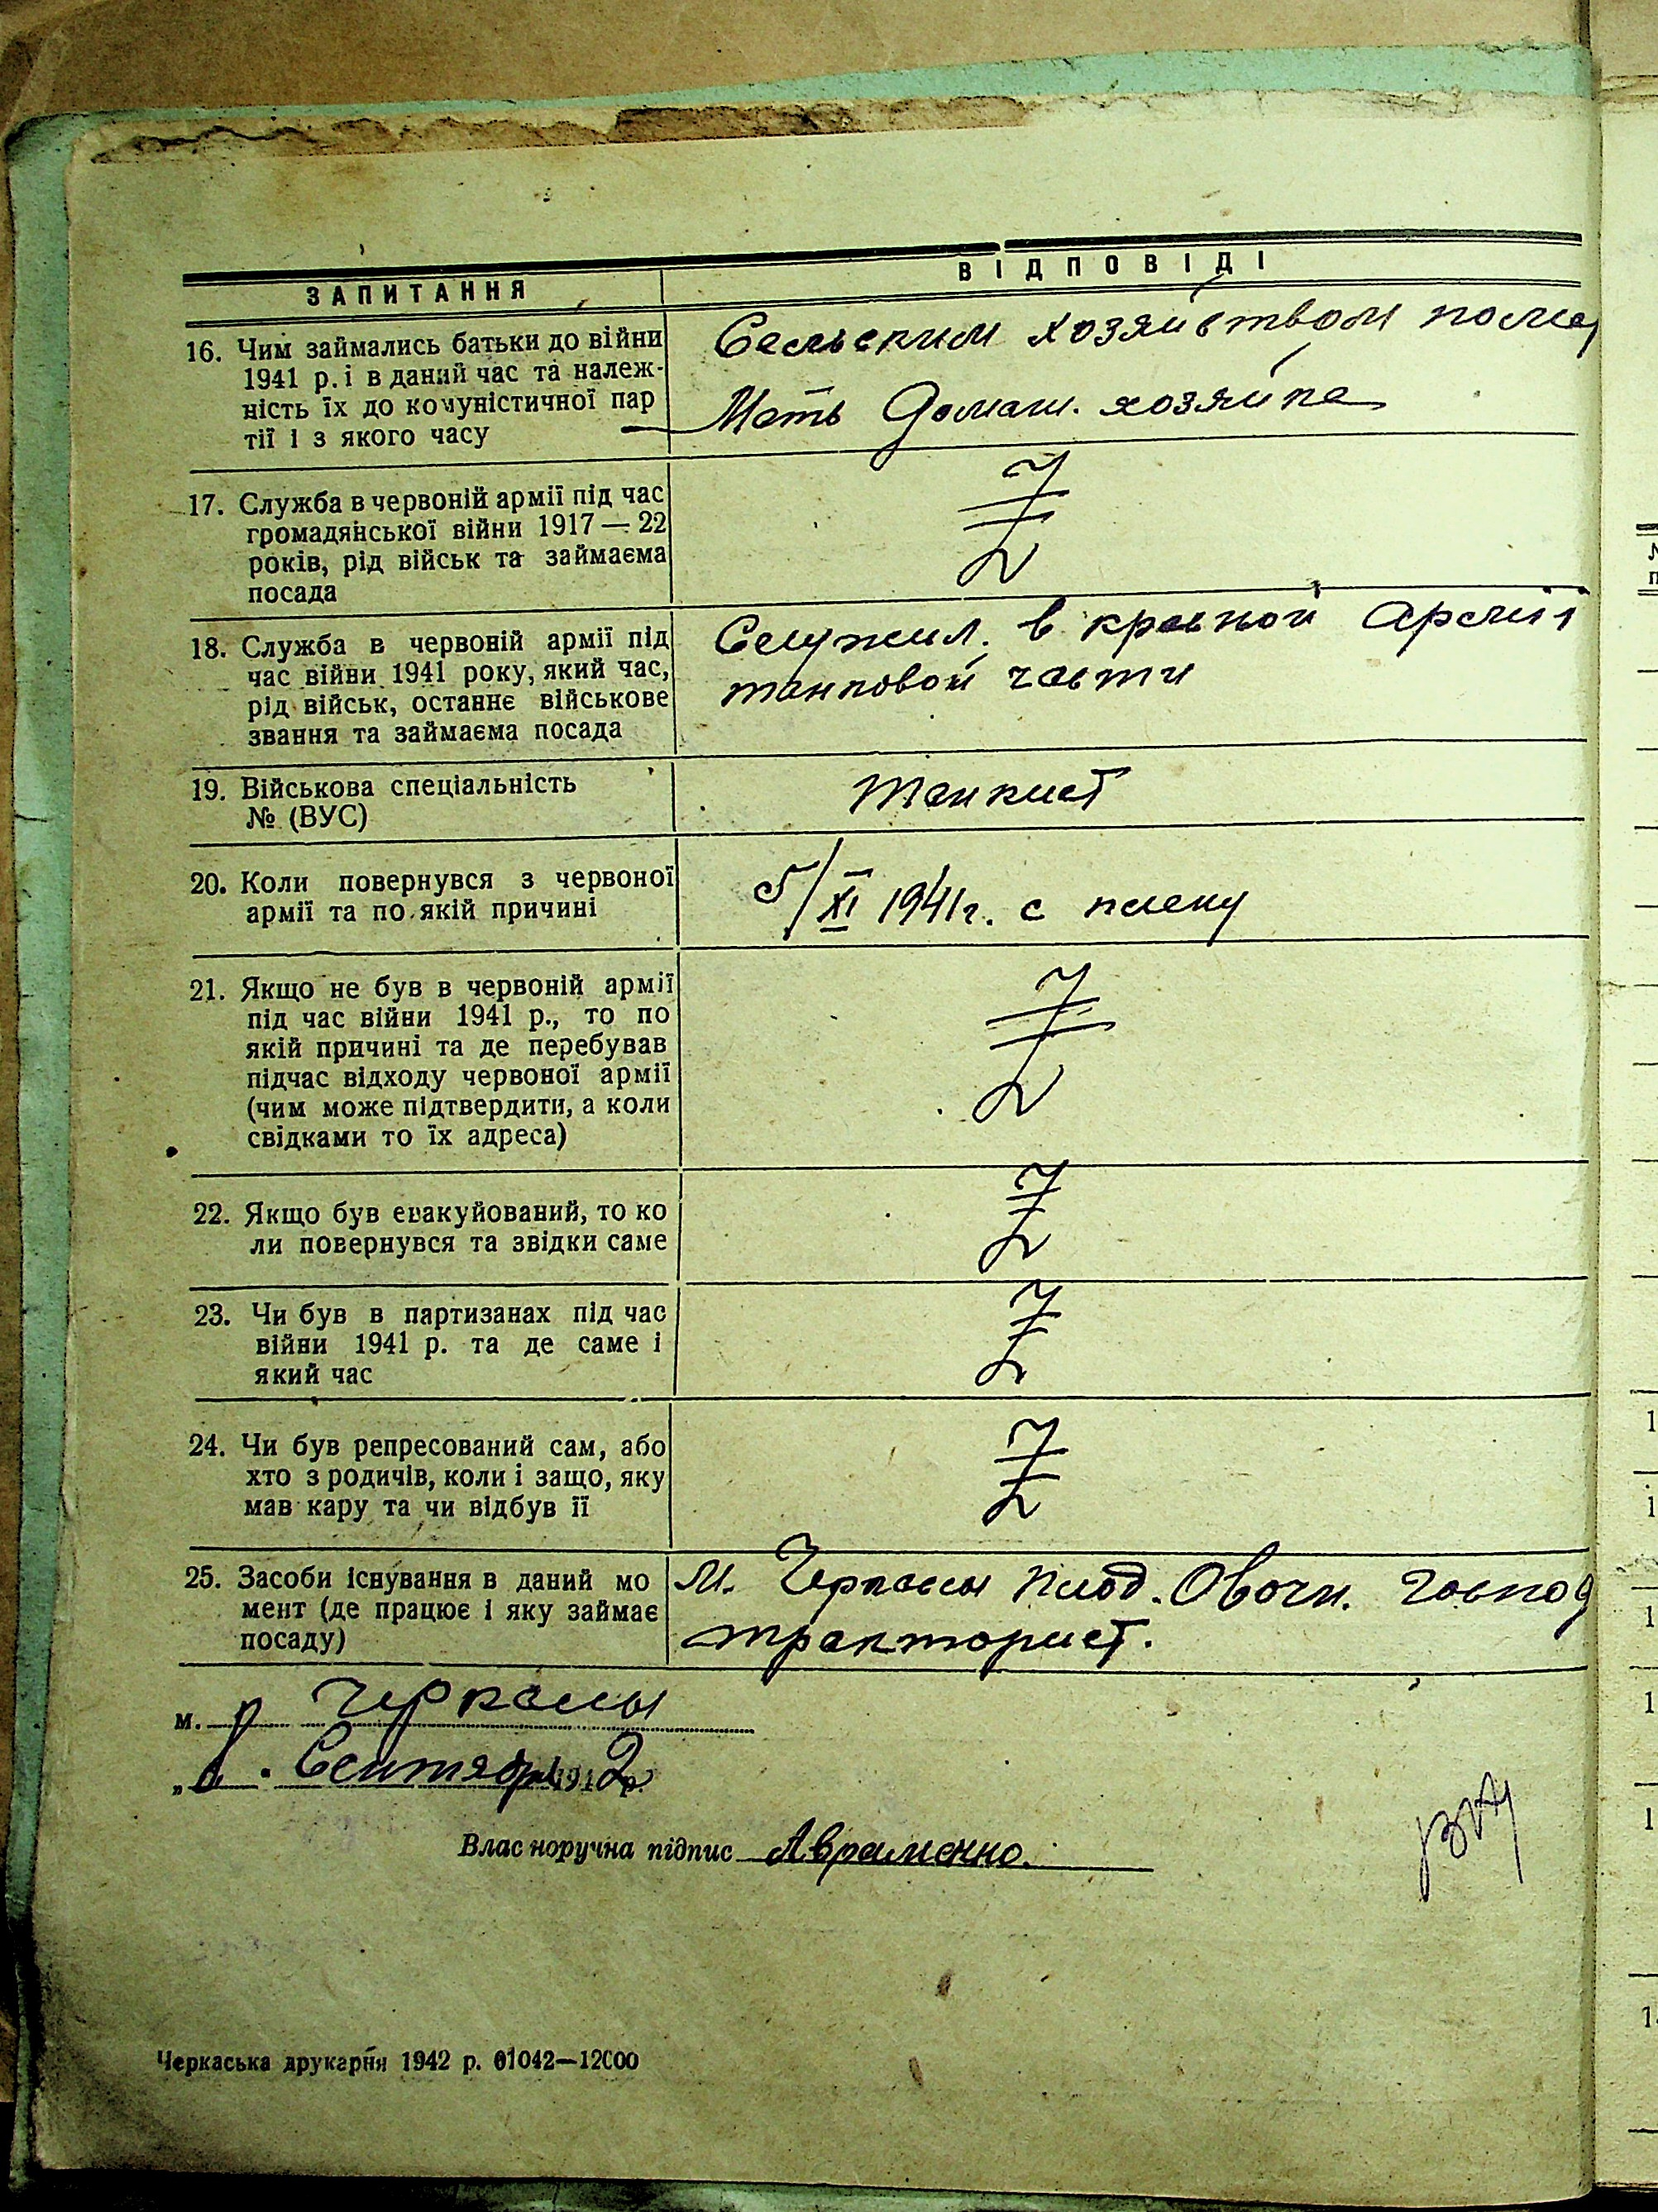 ЗАПИТАННЯ
ВІДПОВІДІ
16. Чим займались батьки до війни
1941 р. і в даний час та належ-
ність їх до комуністичної пар
тії і з якого часу
Сельским хозяйством
Мать домаш. хозяйка
17. Служба в червоній армії під час
громадянської війни 1917 — 22
років, рід військ та займаєма
посада
18. Служба в червоній армії під
час війни 1941 року, який час,
рід військ, останнє військове
звання та займаєма посада
Служил. в красной Армии
танковой части
19. Військова спеціальність
№ (ВУС)
танкист
20. Коли повернувся з червоної
армії та по якій причині
5/XI 1941г. с плену
21. Якщо не був в червоній армії
під час війни 1941 р., то по
якій причині та де перебував
підчас відходу червоної армії
(чим може підтвердити, а коли
свідками то їх адреса)
22. Якщо був евакуйований, то ко
ли повернувся та звідки саме
23. Чи був в партизанах під час
війни 1941 р. та де саме і
який час
24. Чи був репресований сам, або
хто з родичів, коли і защо, яку
мав кару та чи відбув її
25. Засоби існування в даний мо
мент (де працює і яку займає
посаду)
М. Черкассы плод. Овочн. господ
тракторист.
м. Черкасы
Сентября 1942 р.
Влас норучна підпис Авраменко.
Черкаська друкарня 1942 р. 01042—12000